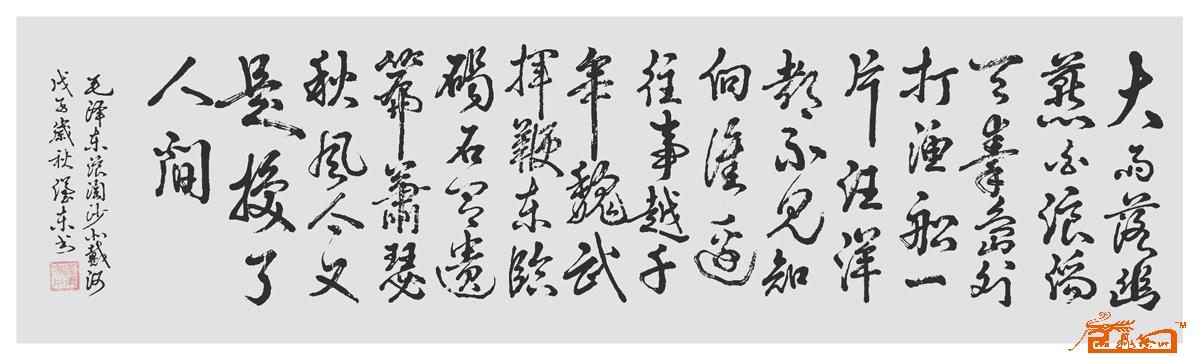 大雨落幽
燕白浪滔
天秦皇島外
打渔船一
片汪洋
都不見知
向誰邊
往事越千
年魏武
揮鞭东臨
碣石有遺
篇蕭瑟
秋風今又
是換了
人間
毛泽东浪淘沙北戴河
戊子歲秋 东书